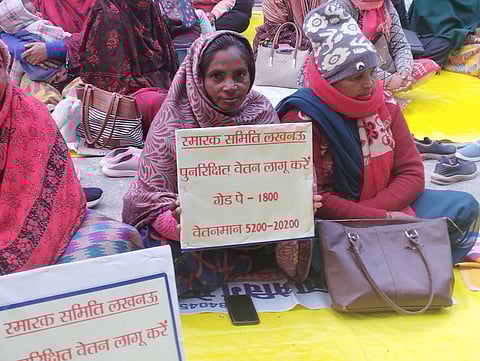 स्मारक समिति लखनऊ
पुनरिक्षित वेतन लागू करें
ग्रेड पे - 1800
वेतनमान 5200-20200
स्मारक समिति लखनऊ
पुनरिक्षित वेतन लागू करें